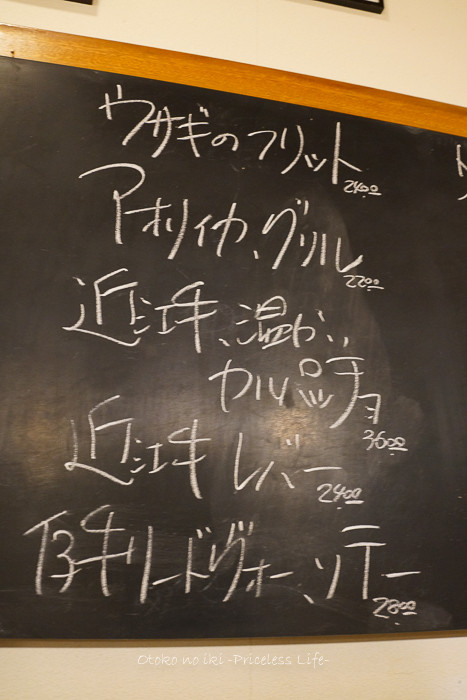 ウサギのフリット
2400
アオリイカ、グリル
2200
近江牛、温かい
カルパッチョ
3600
近江牛 レバー
2400
仔牛リードヴォー、ソテー
2800
Otoko no iki -Priceless Life-